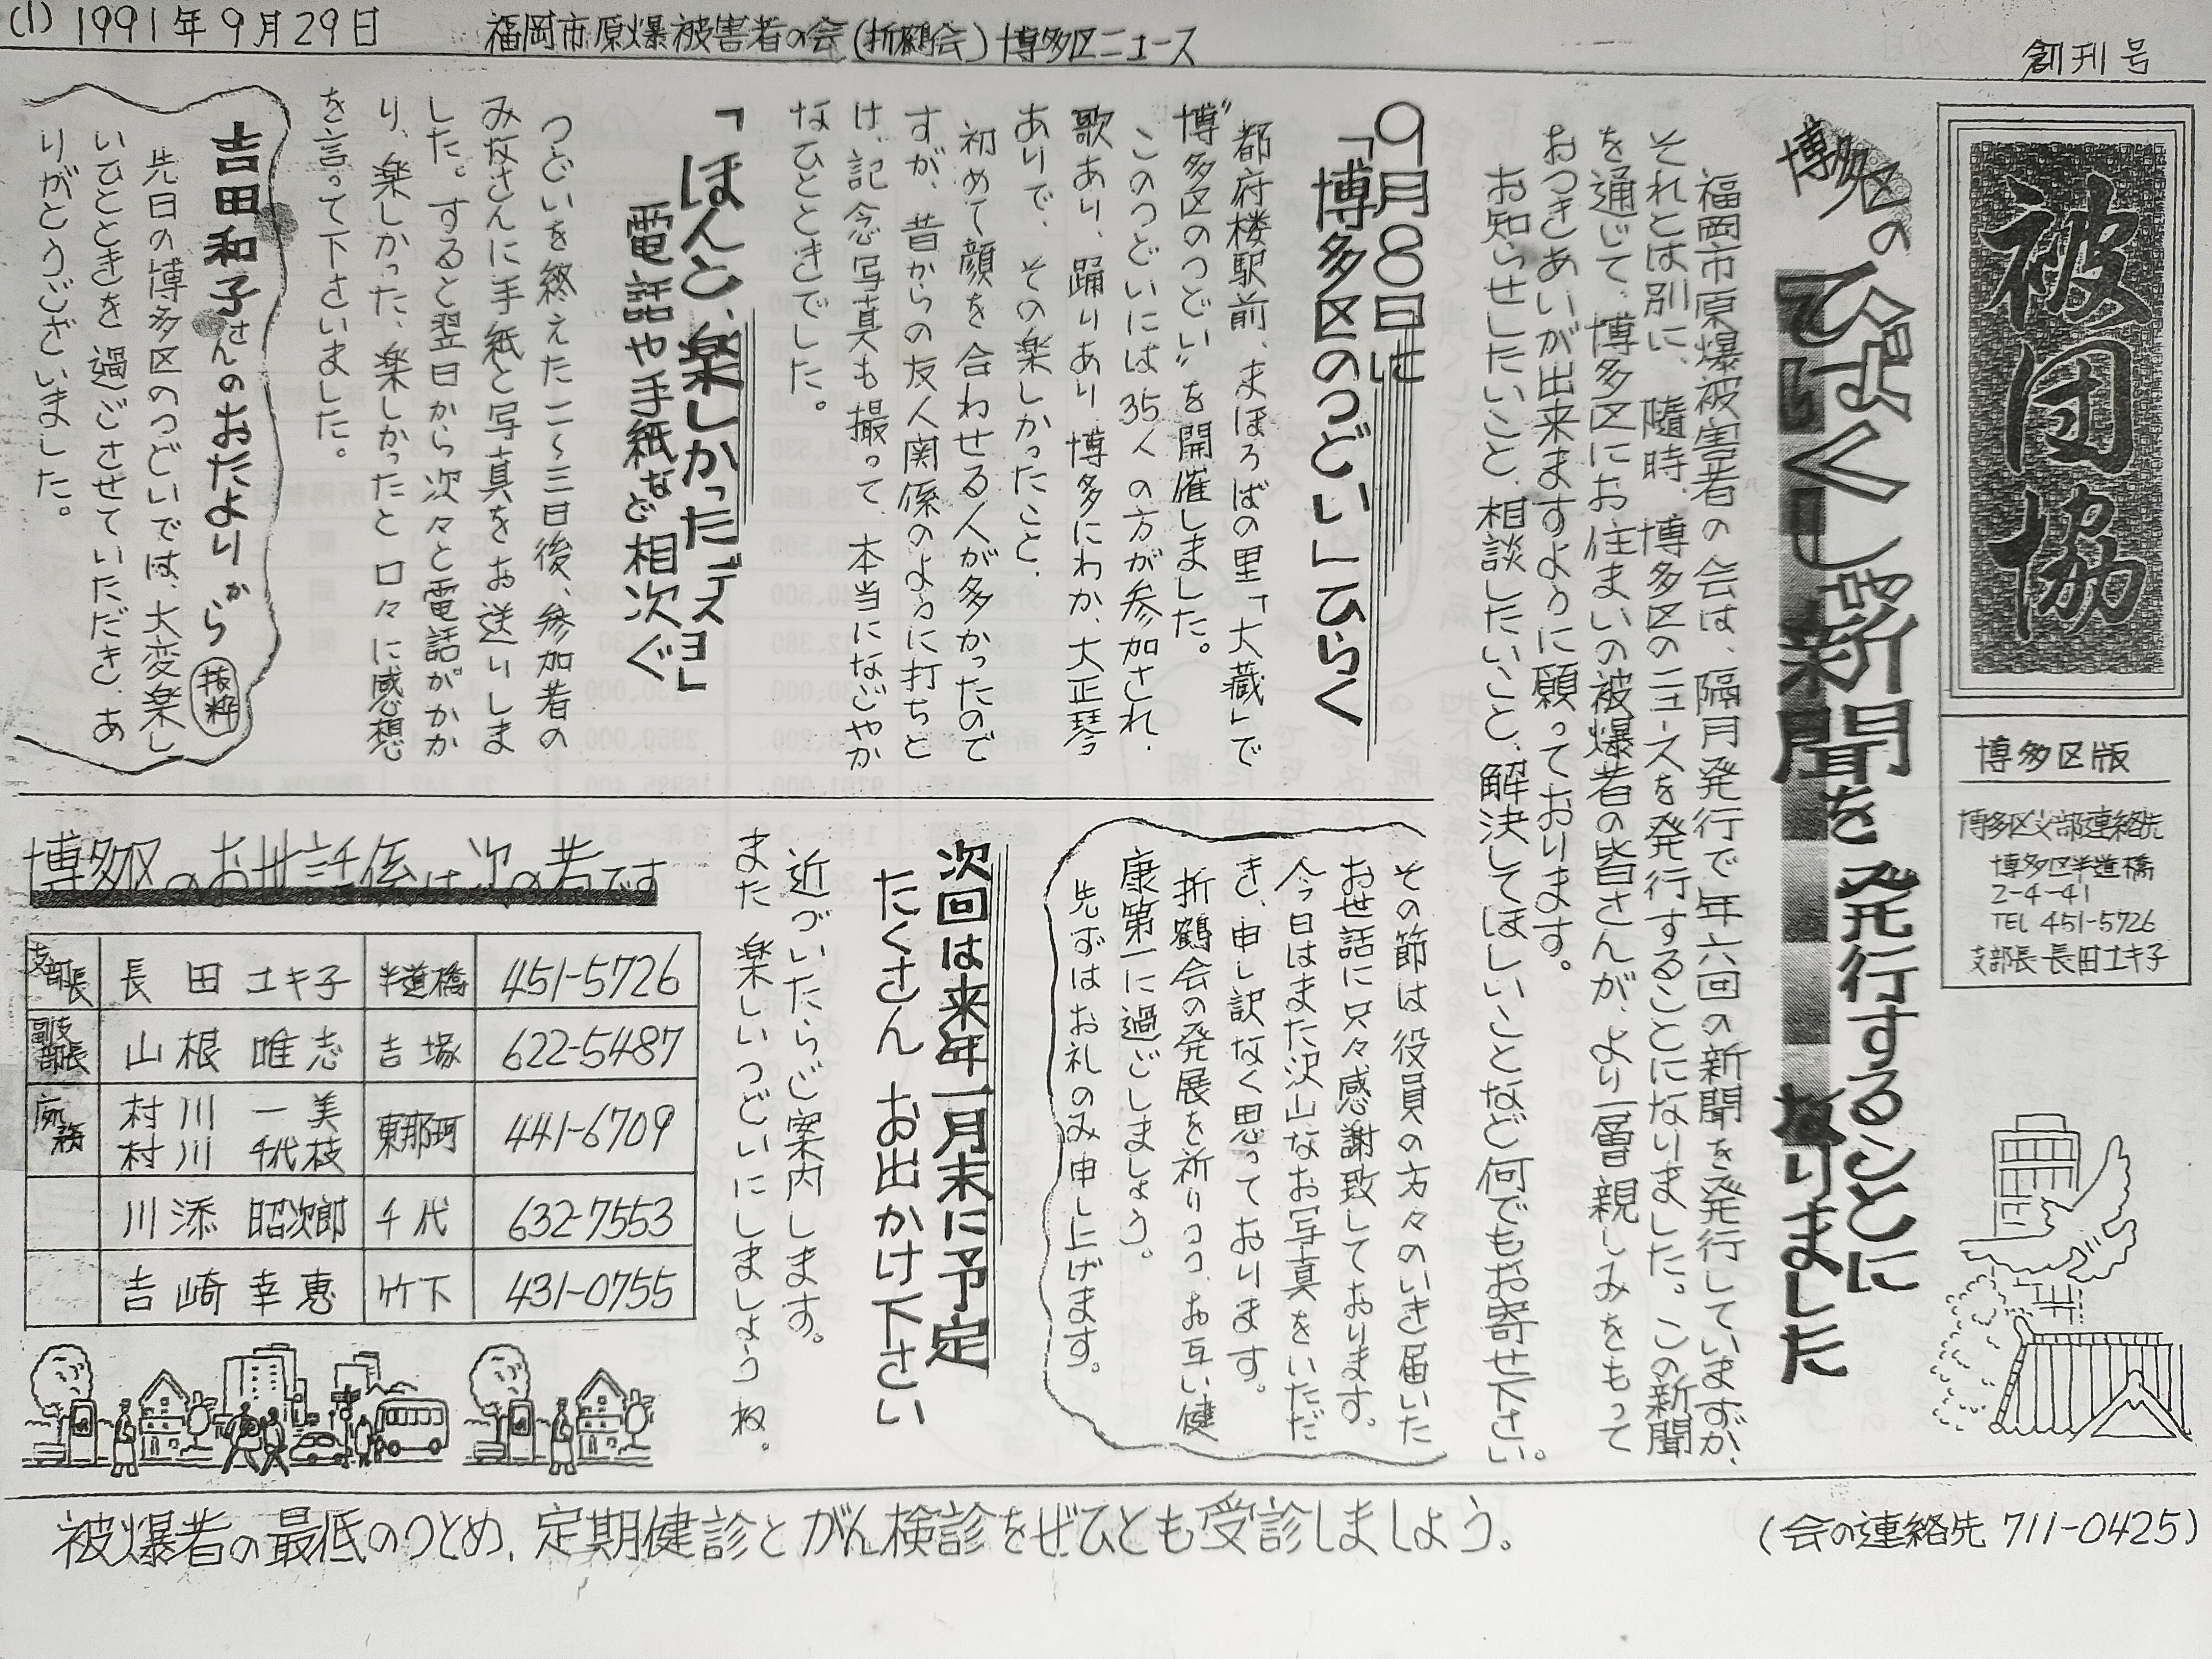 (1) 1991年9月29日
福岡市原爆被害者の会(折鶴会)博多区ニュース
創刊号
被団協
博多区版
博多区支部連絡先
博多区半道橋
2-4-41
TEL 451-5726
支部長 長田ユキ子
博多区の
ひばくしゃ新聞を発行することに
なりました
福岡市原爆被害者の会は、隔月発行で年六回の新聞を発行していますが、
それとは別に、随時、博多区のニュースを発行することになりました。この新聞
を通じて、博多区にお住まいの被爆者の皆さんが、より一層親しみをもって
おつきあいが出来ますように願っております。
お知らせしたいこと、相談したいこと、解決してほしいことなど何でもお寄せ下さい。
9月8日に
「博多区のつどい」ひらく
都府楼駅前、まほろばの里「大蔵」で
“博多区のつどい”を開催しました。
このつどいには35人の方が参加され、
歌あり、踊りあり博多にわか、大正琴
ありで、その楽しかったこと、
初めて顔を合わせる人が多かったので
すが、昔からの友人関係のように打ちと
け、記念写真も撮って、本当になごやか
なひとときでした。
「ほんと、楽しかったデスヨ」
電話や手紙など相次ぐ
つどいを終えた二〜三日後、参加者の
みなさんに手紙と写真をお送りしま
した。すると翌日から次々と電話がかか
り、楽しかった、楽しかったと口々に感想
を言って下さいました。
吉田和子さんのおたよりから 抜粋
先日の博多区のつどいでは、大変楽し
いひとときを過ごさせていただき、あ
りがとうございました。
その節は役員の方々のいき届いた
お世話に只々感謝致しております。
今日はまた沢山なお写真をいただ
き、申し訳なく思っております。
折鶴会の発展を祈りつつ、お互い健
康第一に過ごしましょう。
先ずはお礼のみ申し上げます。
次回は来年一月末に予定
たくさん お出かけ下さい
近づいたらご案内します。
また 楽しいつどいにしましようね。
博多区のお世話係は次の者です
支部長 長田 ユキ子 半道橋 451-5726
副支部長 山根 唯志 吉塚 622-5487
庶務 村川 一美
村川 千代枝 東那珂 441-6709
川添 昭次郎 千代 632-7553
吉崎 幸恵 竹下 431-0755
被爆者の最低のつとめ、定期健診とがん検診をぜひとも受診しましょう。
(会の連絡先 711-0425)